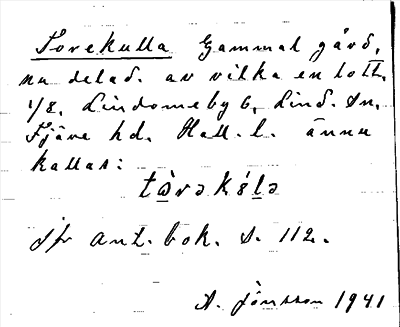 Torekulla Gammal gård,
nu delad. av vilka en lott.
1/8, Lindomeby 6, Lind. sn,
Fjäre hd. Hall. l. ännu
kallas:
jfr ant. bok. s. 112.
A. Jönsson 1941